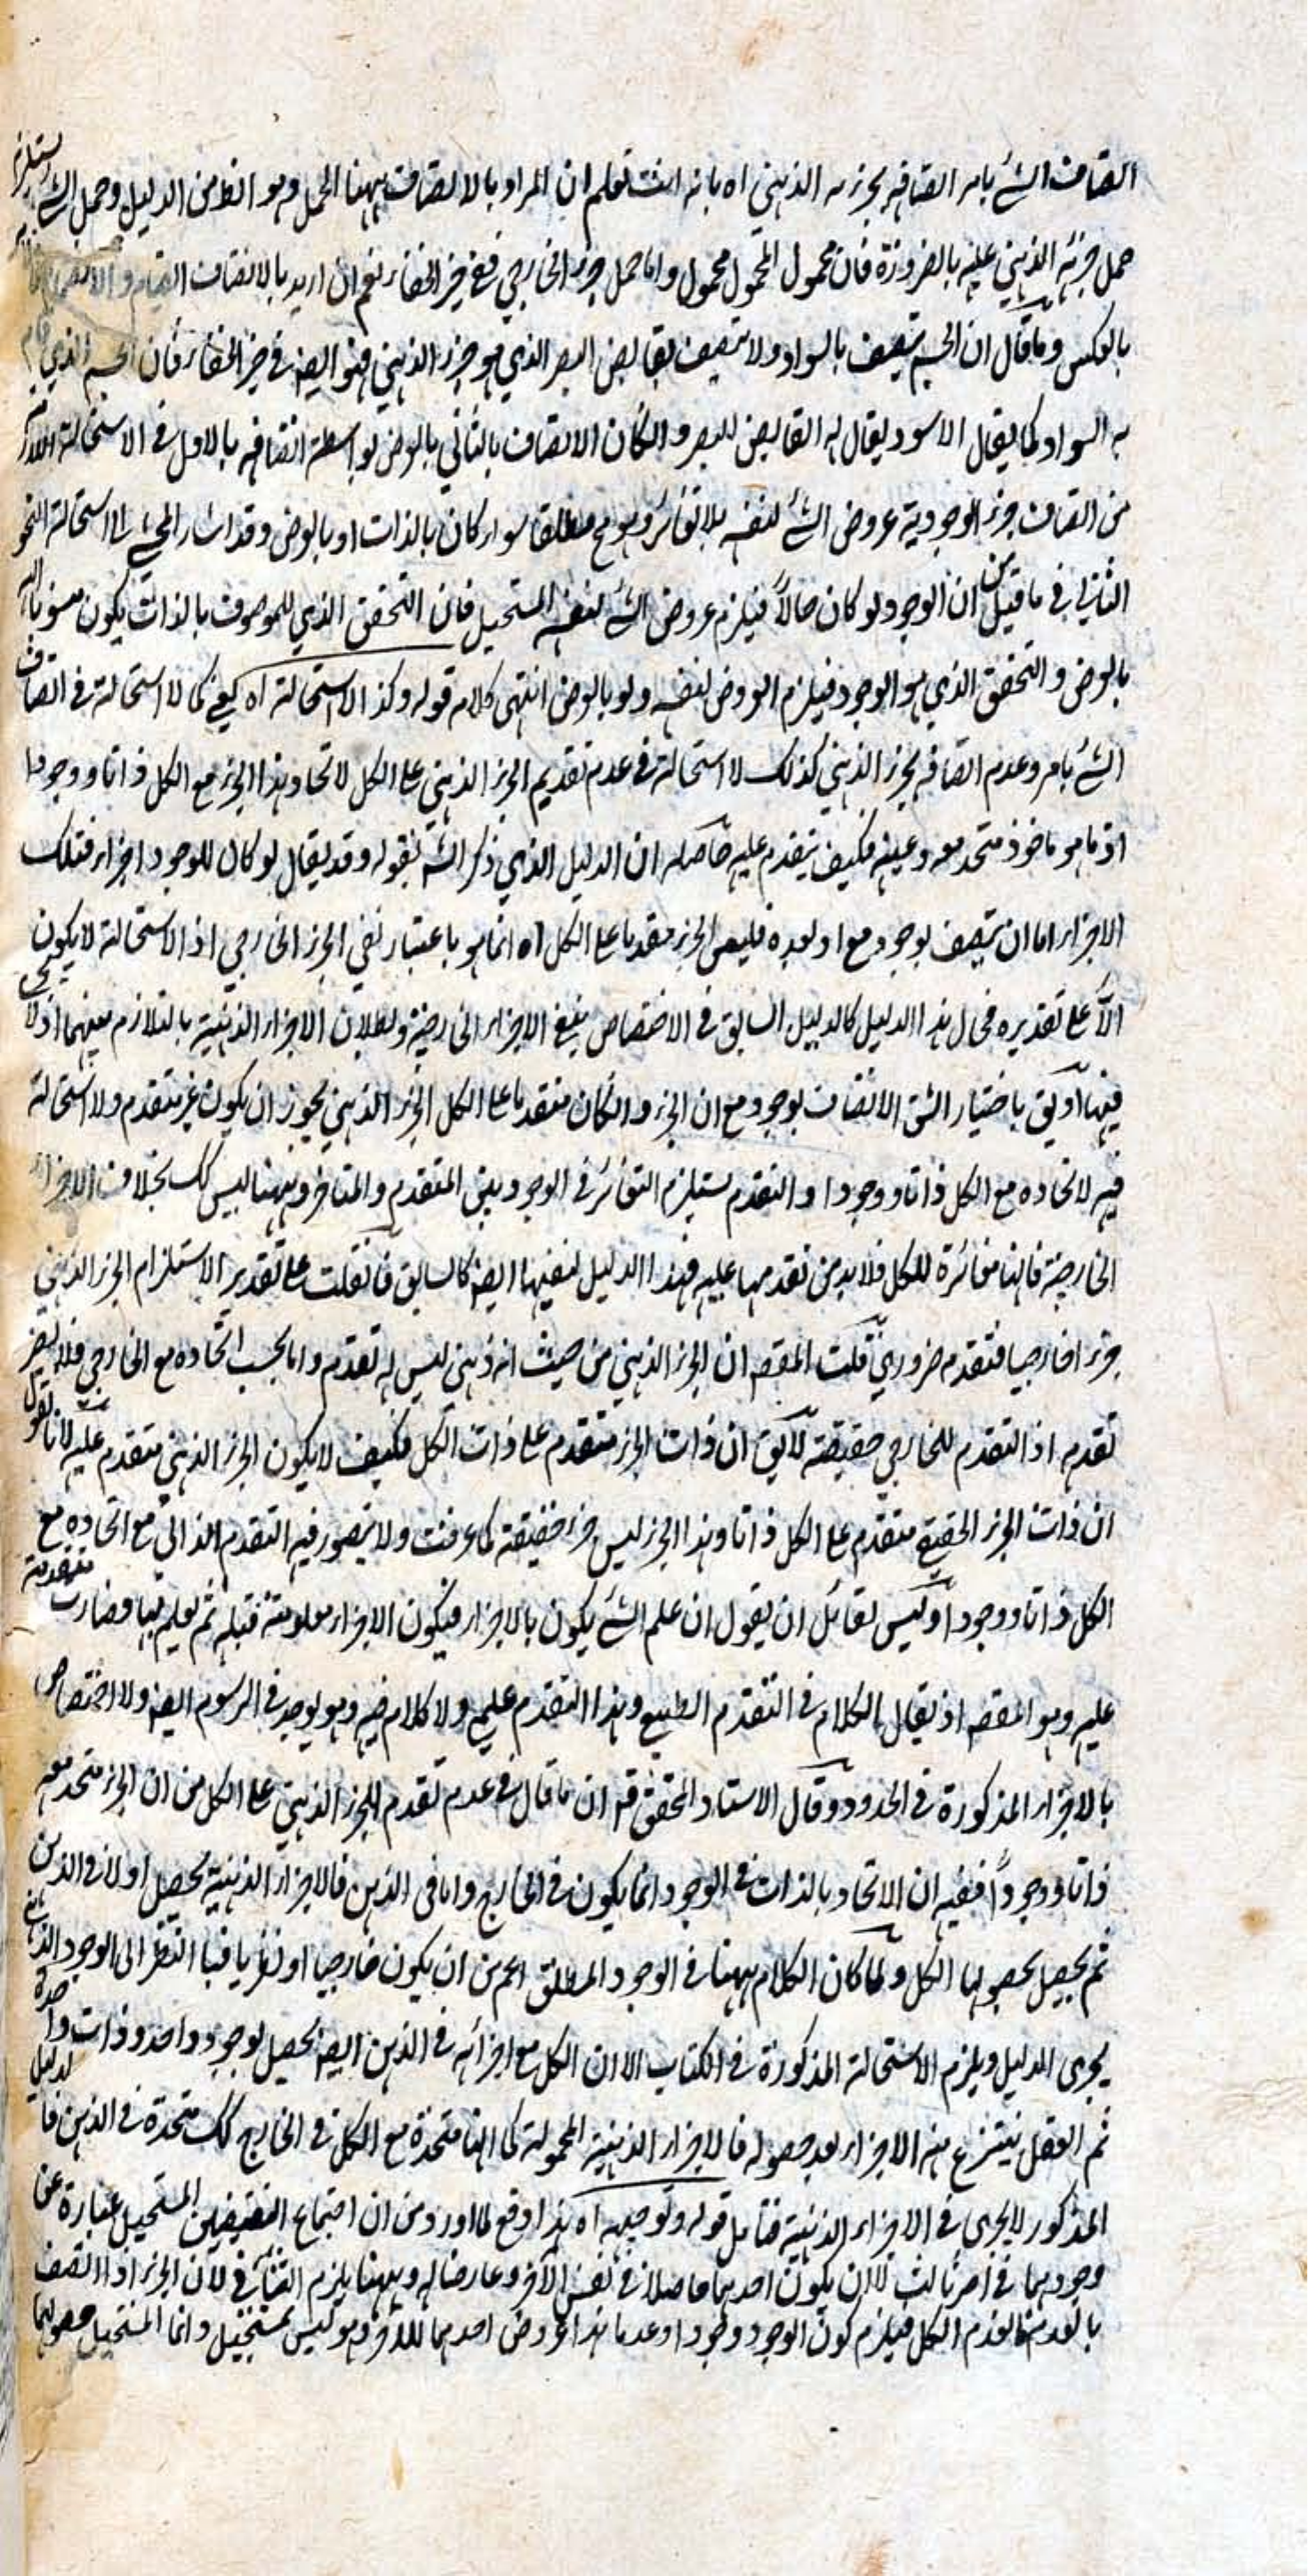 اتصاف الشئ بامر اتصافه بجزئه الذهني اه بانه انت تعلم ان المراد بالاتصاف ههنا الحمل وهو الظ من الدليل وحمل الشئ يستلزم
حمل جزئه الذهني عليه بالضرورة فان محمول المحمول محمول واما حمل جزء الخارجي ففي حيز الخفاء نعم ان اريد بالاتصاف القيام والانضمام
بالعكس وما قال ان الجسم يتصف بالسواد ولا يتصف بقابض البصر الذي هو جزءه الذهني فهو ايضا في حيز الخفاء فان الجسم الذي قام
به السواد كما يقال الاسود يقال له القابض للبصر وان كان الاتصاف بالثاني بالعرض بواسطة اتصافه بالاول في الاستحالة اللازم
من اتصاف جزء الوجود به عروض الشئ لنفسه بلا تغائر وهو مح مطلقا سواء كان بالذات او بالعرض وقد اشار المحشي الى استحالة النحو
الثاني في ما قيل من ان الوجود لو كان حالا فيلزم عروض الشئ لنفسه المستحيل فان التحقق الذي للموصوف بالذات يكون منسوبا اليه
بالعرض والتحقق الذي هو الوجود فيلزم العروض لنفسه ولو بالعرض انتهى كلامه قوله وكذا لا استحالة اه يعني كما لا استحالة في اتصاف
الشئ بامر وعدم اتصافه بجزئه الذهني كذلك لا استحالة في عدم تقديم الجزء الذهني على الكل لاتحاد هذا الجزء مع الكل ذاتا ووجودا
اذ ما هو ماخوذ متحد معه وعينه فكيف يتقدم عليه حاصله ان الدليل الذي ذكر الشه بقوله وقد يقال لو كان للوجود اجزاء فتلك
الاجزاء اما ان تتصف بوجود مع او بعده فليس الجزء متقدما على الكل اه انما هو باعتبار نفي الجزء الخارجي اذ الاستحالة لا يكون
الا على تقديره فحال هذا الدليل كالدليل السابق في الاختصاص بنفي الاجزاء الخارجية وبطلان الاجزاء الذهنية بالتلازم بينهما اذ لا يجري
فيها او يق باختيار الشق الاتصاف بوجود مع ان الجزء وان كان متقدما على الكل الجزء الذهني يجوز ان يكون غير متقدم ولا استحالة
فيه لاتحاده مع الكل ذاتا ووجودا والتقدم يستلزم التغائر في الوجود بين المتقدم والمتاخر وههنا ليس كك بخلاف الاجزاء
الخارجية فانها مغائرة للكل فلا بد من تقدمها عليه فهذا الدليل لنفيها ايضا كالسابق فان قلت على تقدير الاستلزام الجزء الذهني
جزءا خارجيا فتقدمه ضروري قلت المقصه ان الجزء الذهني من حيث انه ذهني ليس له تقدم واما بحسب اتحاده مع الخارجي فلا يضر
تقدمه اذ التقدم للخارجي حقيقة لا يق ان ذات الجزء متقدم على ذات الكل فكيف لا يكون الجزء الذهني متقدم عليه لانا نقول
ان ذات الجزء الحقيقي متقدم على الكل ذاتا وهذا الجزء ليس جزء حقيقة كما عرفت ولا يتصور فيه التقدم الذاتي مع اتحاده مع
الكل ذاتا ووجودا وليس لقائل ان يقول ان علم الشئ يكون بالاجزاء فيكون الاجزاء معلومة قبله ثم يعلم بها فصارت متقدمة
عليه وهو المقصه اذ يقال الكلام في التقدم الطبيعي وهذا التقدم علمي ولا كلام فيه وهو يوجد في الرسوم ايضا ولا اختصاص
بالاجزاء المذكورة في الحدود وقال الاستاد المحقق قه ان ما قال في عدم تقدم الجزء الذهني على الكل من ان الجزء متحد معه
ذاتا ووجودا ففيه ان الاتحاد بالذات في الوجود انما يكون في الخارج واما في الذهن فالاجزاء الذهنية يحصل اولا في الذهن
ثم يحصل بحصولها الكل ولما كان الكلام ههنا في الوجود المطلق اعم من ان يكون خارجيا او ذهنيا فبالنظر الى الوجود الذهني
يجري الدليل ويلزم الاستحالة المذكورة في الكتاب الا ان الكل مع اجزائه في الذهن ايضا يحصل بوجود واحد وذات واحدة
ثم العقل ينتزع منه الاجزاء بعد حصوله فالاجزاء الذهنية المحمولة كما انها متحدة مع الكل في الخارج كك متحدة في الذهن فالدليل
المذكور لا يجري في الاجزاء الذهنية فتامل قوله وتوجيهه اه هذا دفع لما اورد من ان اجتماع النقيضين المستحيل عبارة عن
وجودهما في امر ثالث لا ان يكون احدهما حاصلا في نفس الآخر وعارضا له وههنا يلزم الثاني لان الجزء اذا اتصف
بالعدم فانعدم الكل فيلزم كون الوجود وجودا وعدما هذا عروض احدهما للآخر وهو ليس بمستحيل وانما المستحيل حصولهما